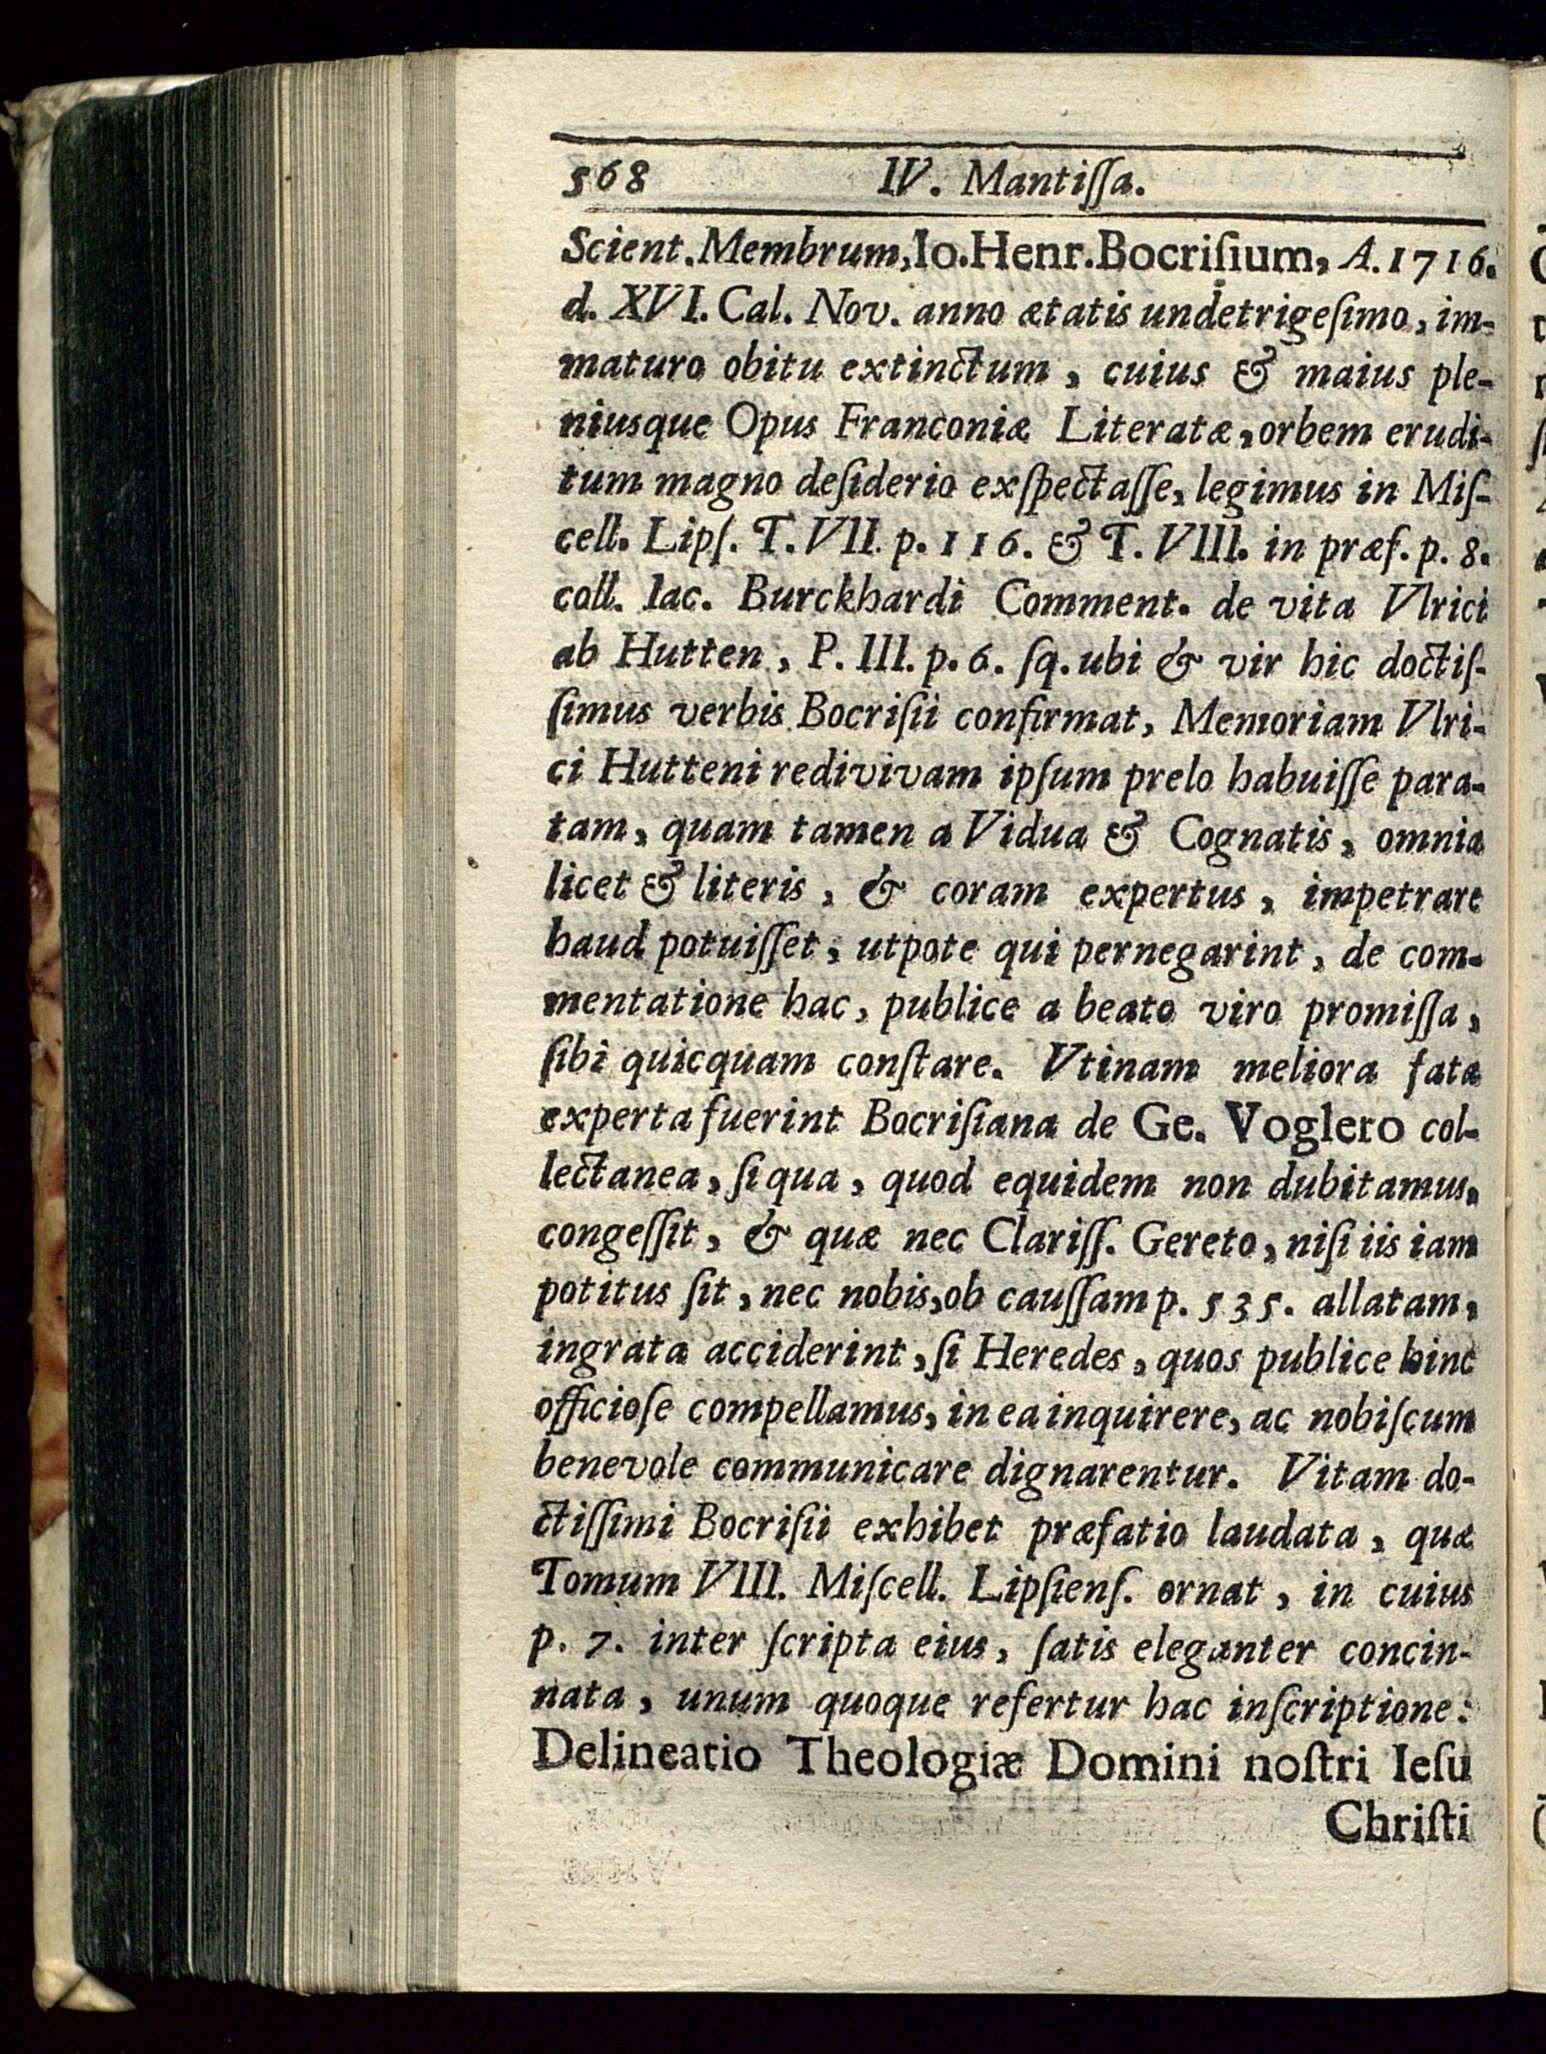 568 IV. Mantiſſa.
Scient. Membrum, Io. Henr. Bocriſium, A. 1716.
d. XVI. Cal. Nov. anno ætatis undetrigeſimo, im-
maturo obitu extinctum, cuius & maius ple-
niusque Opus Franconiæ Literatæ, orbem erudi-
tum magno deſiderio exſpectaſſe, legimus in Miſ-
cell. Lipſ. T. VII. p. 116. & T. VIII. in præf. p. 8.
coll. Iac. Burckhardi Comment. de vita Vlrici
ab Hutten, P. III. p. 6. ſq. ubi & vir hic doctiſ-
ſimus verbis Bocriſii confirmat, Memoriam Vlri-
ci Hutteni redivivam ipſum prelo habuiſſe para-
tam, quam tamen a Vidua & Cognatis, omnia
licet & literis, & coram expertus, impetrare
haud potuiſſet, utpote qui pernegarint, de com-
mentatione hac, publice a beato viro promiſſa,
ſibi quicquam conſtare. Vtinam meliora fata
experta fuerint Bocriſiana de Ge. Voglero col-
lectanea, ſi qua, quod equidem non dubitamus,
congeſſit, & quæ nec Clariſſ. Gereto, niſi iis iam
potitus ſit, nec nobis, ob cauſſam p. 535. allatam,
ingrata acciderint, ſi Heredes, quos publice hinc
officioſe compellamus, in ea inquirere, ac nobiſcum
benevole communicare dignarentur. Vitam do-
ctiſſimi Bocriſii exhibet præfatio laudata, quæ
Tomum VIII. Miſcell. Lipſienſ. ornat, in cuius
p. 7. inter ſcripta eius, ſatis eleganter concin-
nata, unum quoque refertur hac inſcriptione:
Delineatio Theologiæ Domini noſtri Ieſu
Chriſti